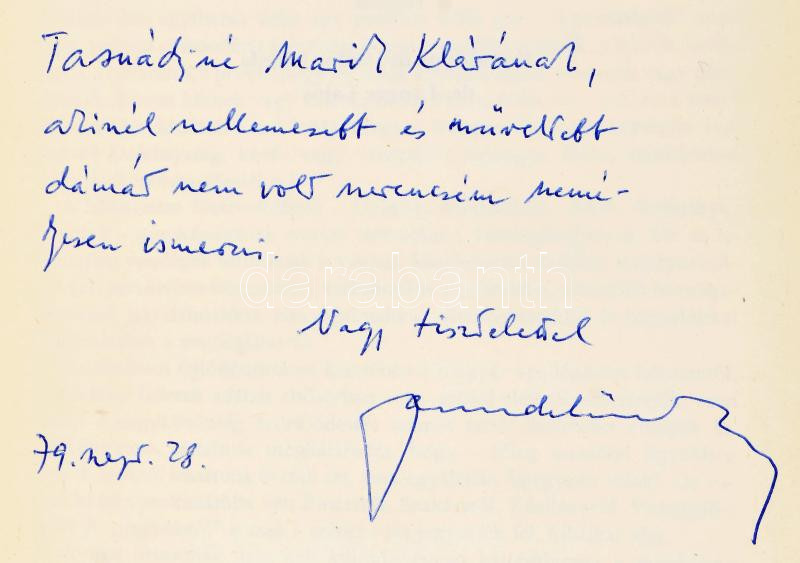 Tasnádjné Marik Klárának,
akinél szellemesebb és műveltebb
dámát nem volt szerencsém szemé-
lyesen ismerni.
darabanth
Nagy tisztelettel
79. szept. 28.